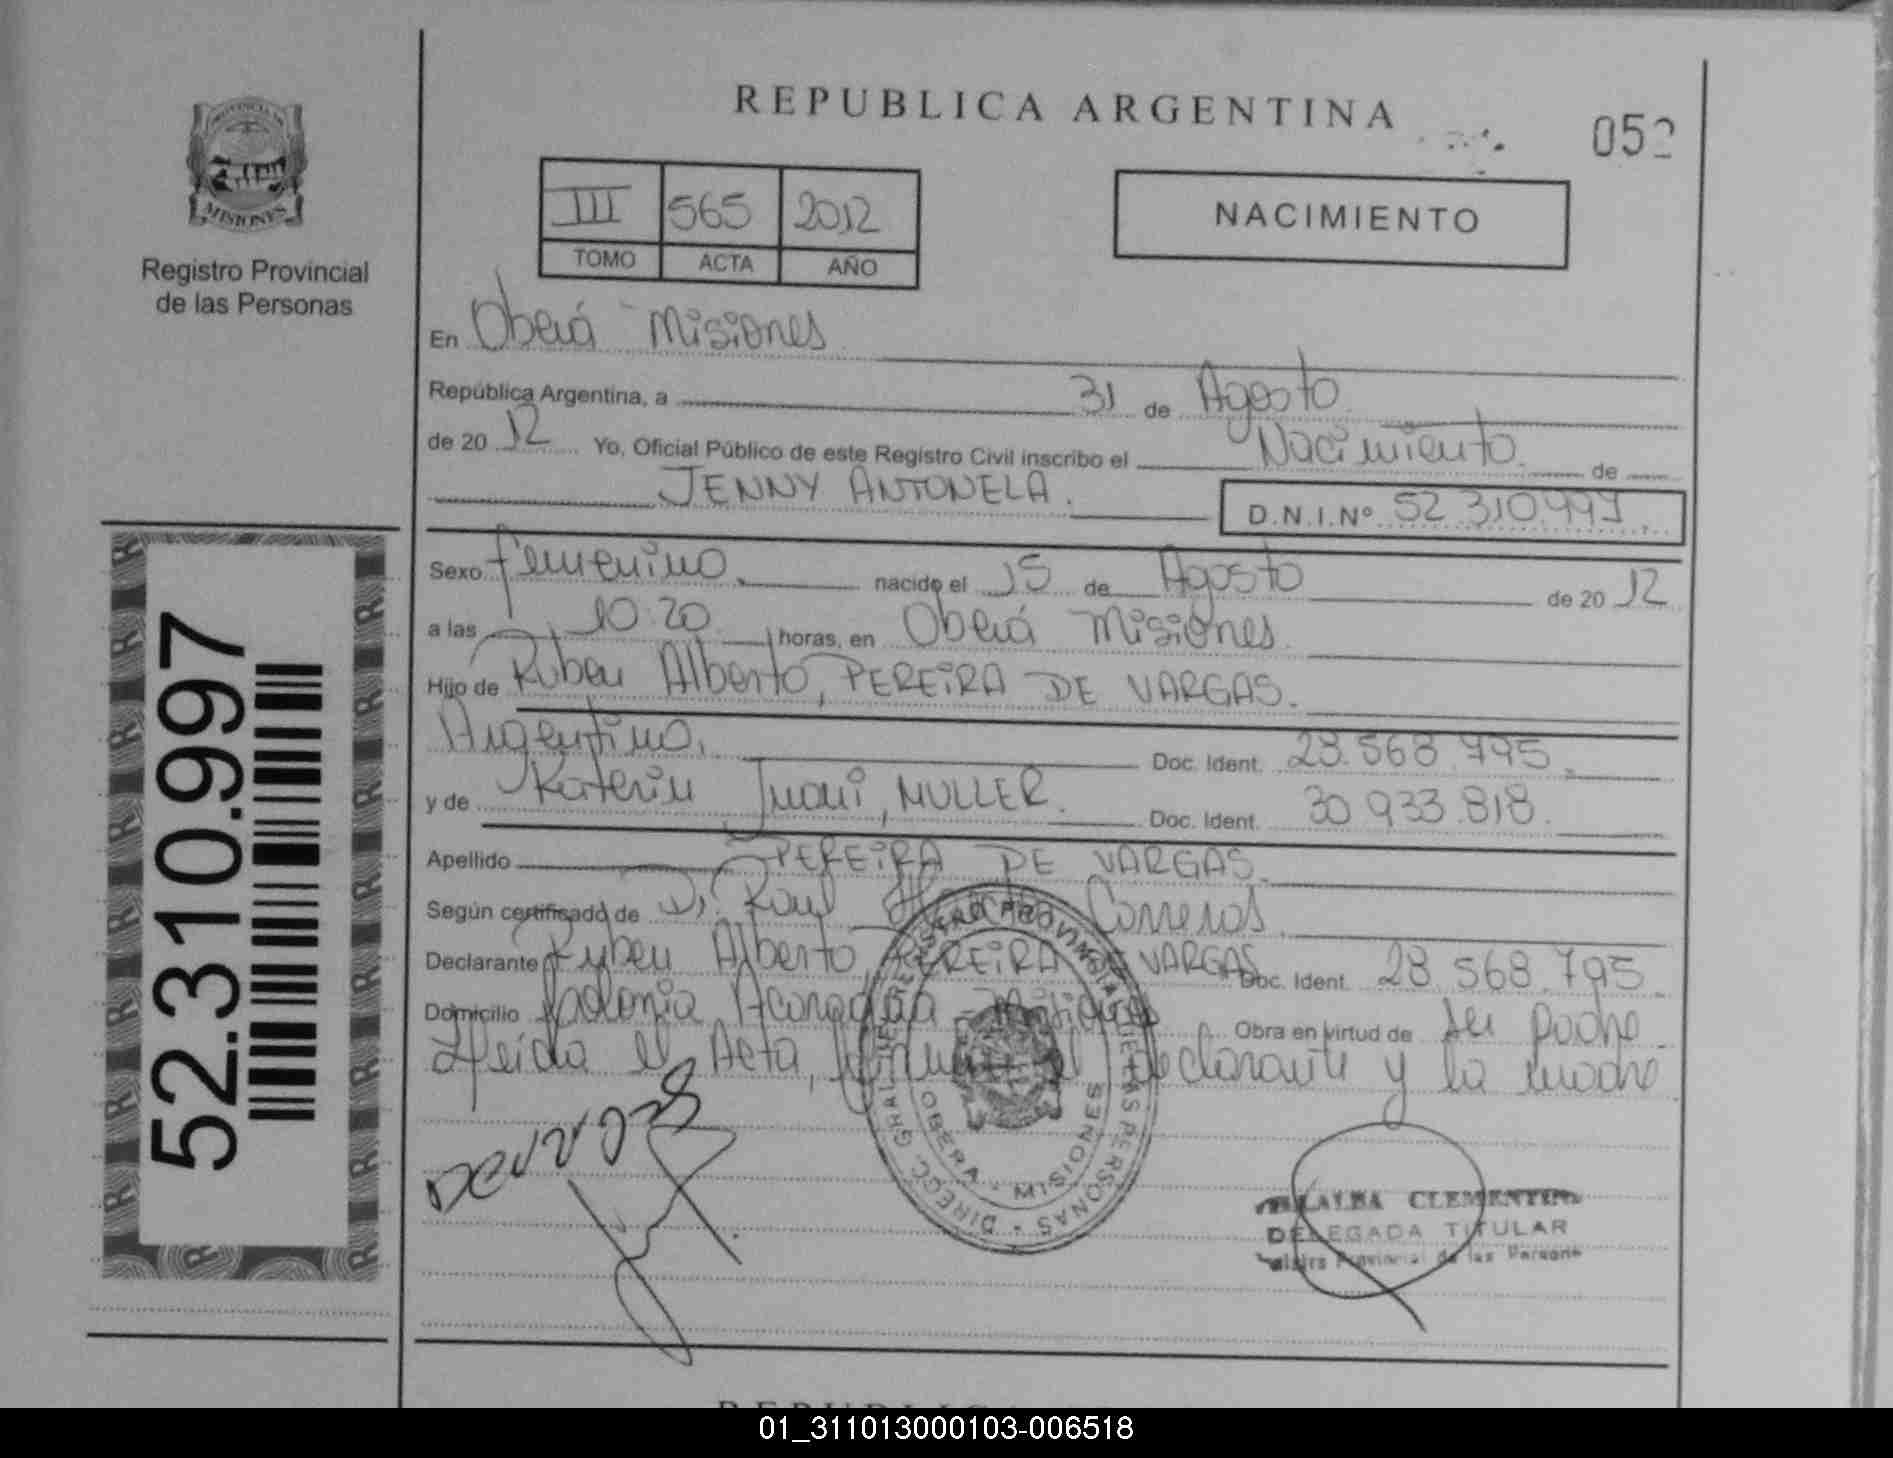 REPUBLICA ARGENTINA
052
PROVINCIA DE
MISIONES
Registro Provincial
de las Personas
III 565 2012
TOMO ACTA AÑO
NACIMIENTO
En Oberá Misiones
República Argentina, a 31 de Agosto
de 20 12 Yo, Oficial Público de este Registro Civil inscribo el Nacimiento de
JENNY ANTONELA. D.N.I.Nº 52 310.997
Sexo femenino. nacido el 15 de Agosto de 20 12
a las 10:20 horas, en Oberá Misiones.
Hijo de Ruben Alberto, PEREIRA DE VARGAS.
Argentino. Doc. Ident. 28.568.795
y de Katerin, MULLER. Doc. Ident. 30 933.818.
Apellido PEREIRA DE VARGAS.
Según certificado de Dr. Raul
Declarante Ruben Alberto, PEREIRA DE VARGAS Doc. Ident. 28.568.795
Domicilio Colonia Misiones Obra en virtud de ser padre
Leida el Acta, el declarante y la madre
52.310.997
DIRECC. GRAL. DE REGISTRO PROVINCIAL DE LAS PERSONAS
OBERA - MISIONES
CLEMENTINA
DELEGADA TITULAR
Provincial de las Personas
01_311013000103-006518